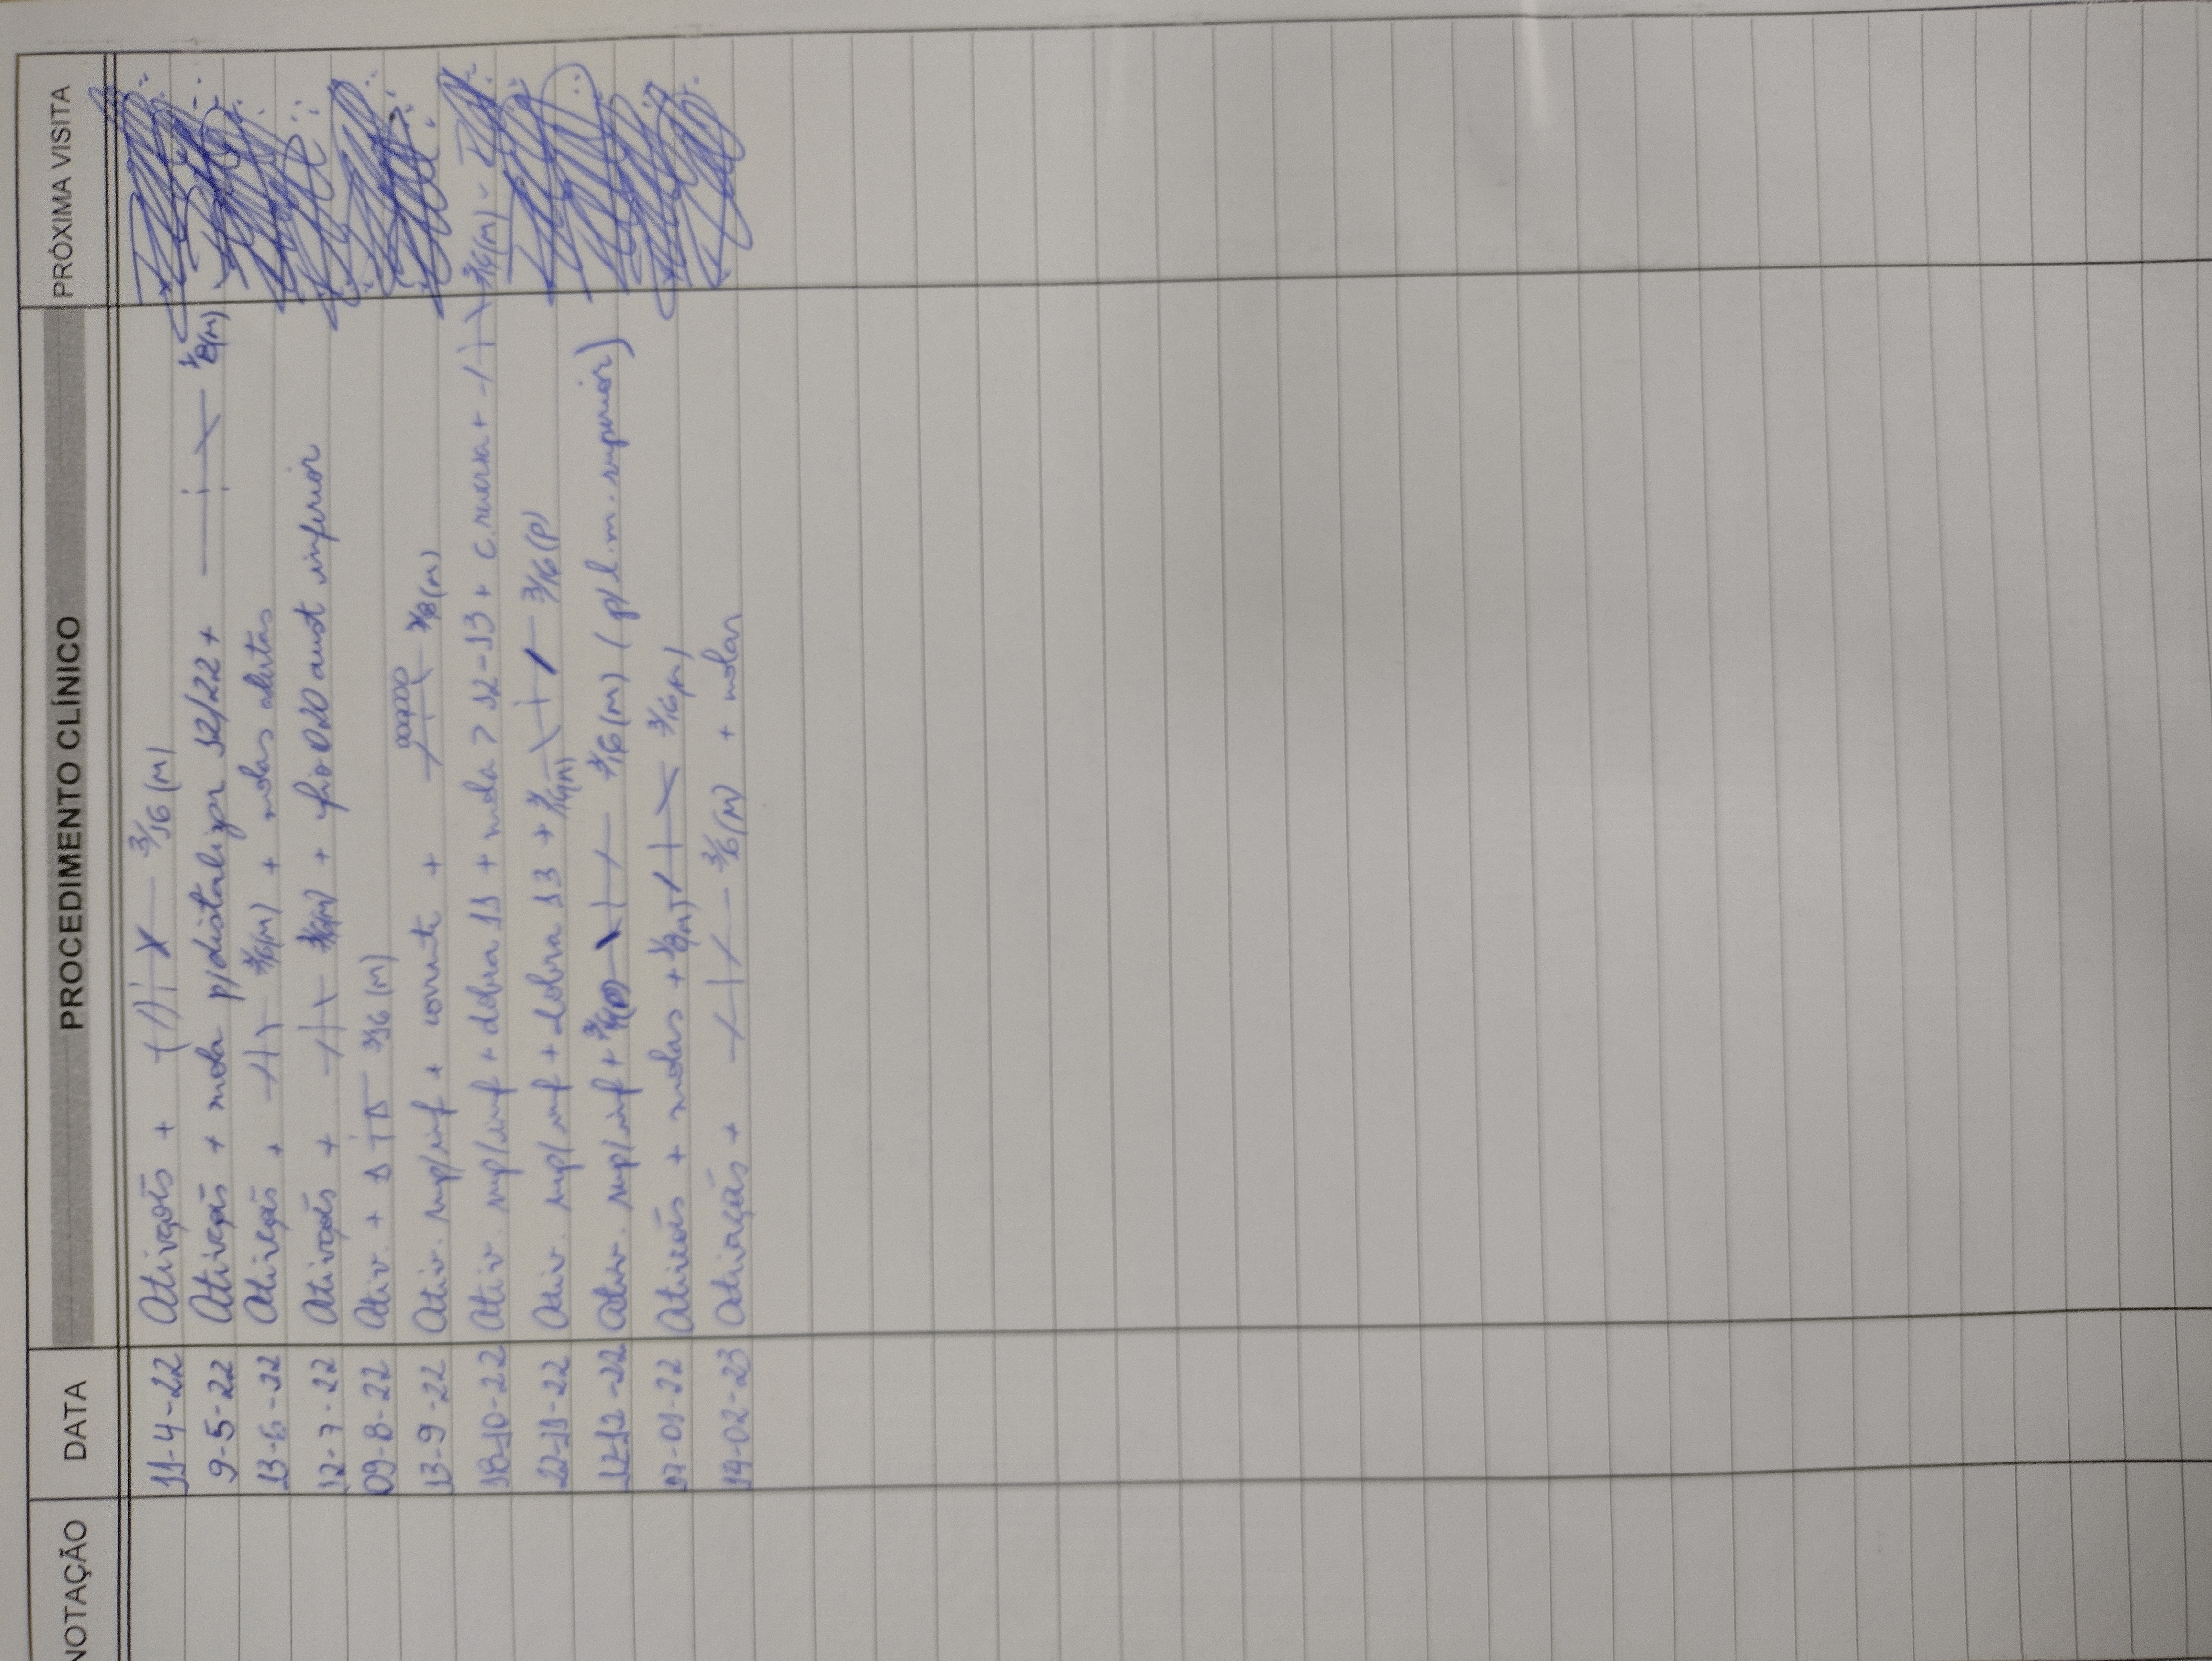 NOTAÇÃO DATA PROCEDIMENTO CLÍNICO PRÓXIMA VISITA
11-4-22 Ativação + 3/16 (M)
9-5-22 Ativação + mola p/distalizar 12/22 + 1/8(M)
13-6-22 Ativação + 3/16(M) + molas abertas
12-7-22 Ativação + 3/16(M) + fio 020 aust inferior
09-8-22 Ativ. + 3/16 (M)
13-9-22 Ativ. sup/inf + corrente + 1/8(M)
18-10-22 Ativ. sup/inf + dobra 11 + mola > 12-13 + c. reversa + 3/16(M)
22-11-22 Ativ. sup/inf + dobra 13 + 3/16(M) 3/16(P)
12-12-22 Ativ. sup/inf + 3/16(P) 3/16(M) (p/ l.m. superior)
17-01-22 Ativação + molas + 1/8(M) 3/16(M)
14-02-23 Ativação + 3/16(M) + molas